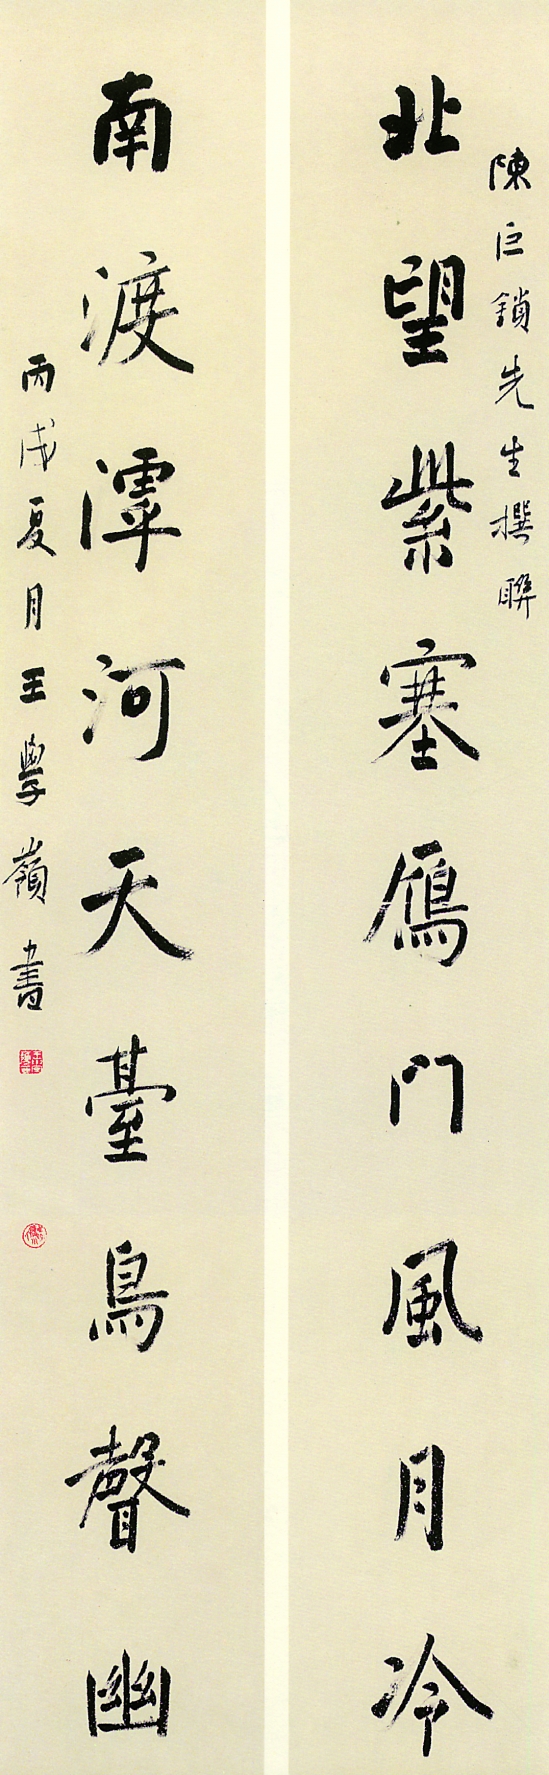 陳巨鎖先生撰聯
北望紫塞鴈門風月冷
南渡滹河天臺鳥聲幽
丙戌夏月王學嶺書